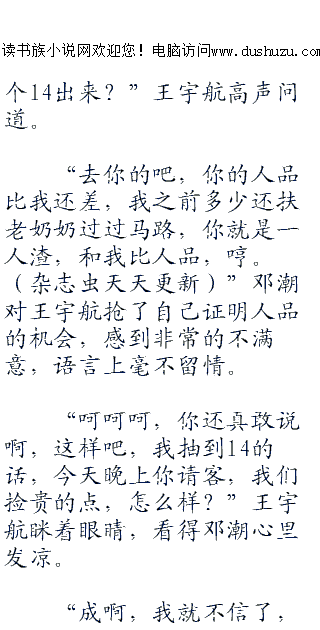 读书族小说网欢迎您！电脑访问www.dushuzu.com
个14出来？”王宇航高声问
道。
“去你的吧，你的人品
比我还差，我之前多少还扶
老奶奶过过马路，你就是一
人渣，和我比人品，哼。
（杂志虫天天更新）”邓潮
对王宇航抢了自己证明人品
的机会，感到非常的不满
意，语言上毫不留情。
“呵呵呵，你还真敢说
啊，这样吧，我抽到14的
话，今天晚上你请客，我们
捡贵的点，怎么样？”王宇
航眯着眼睛，看得邓潮心里
发凉。
“成啊，我就不信了，